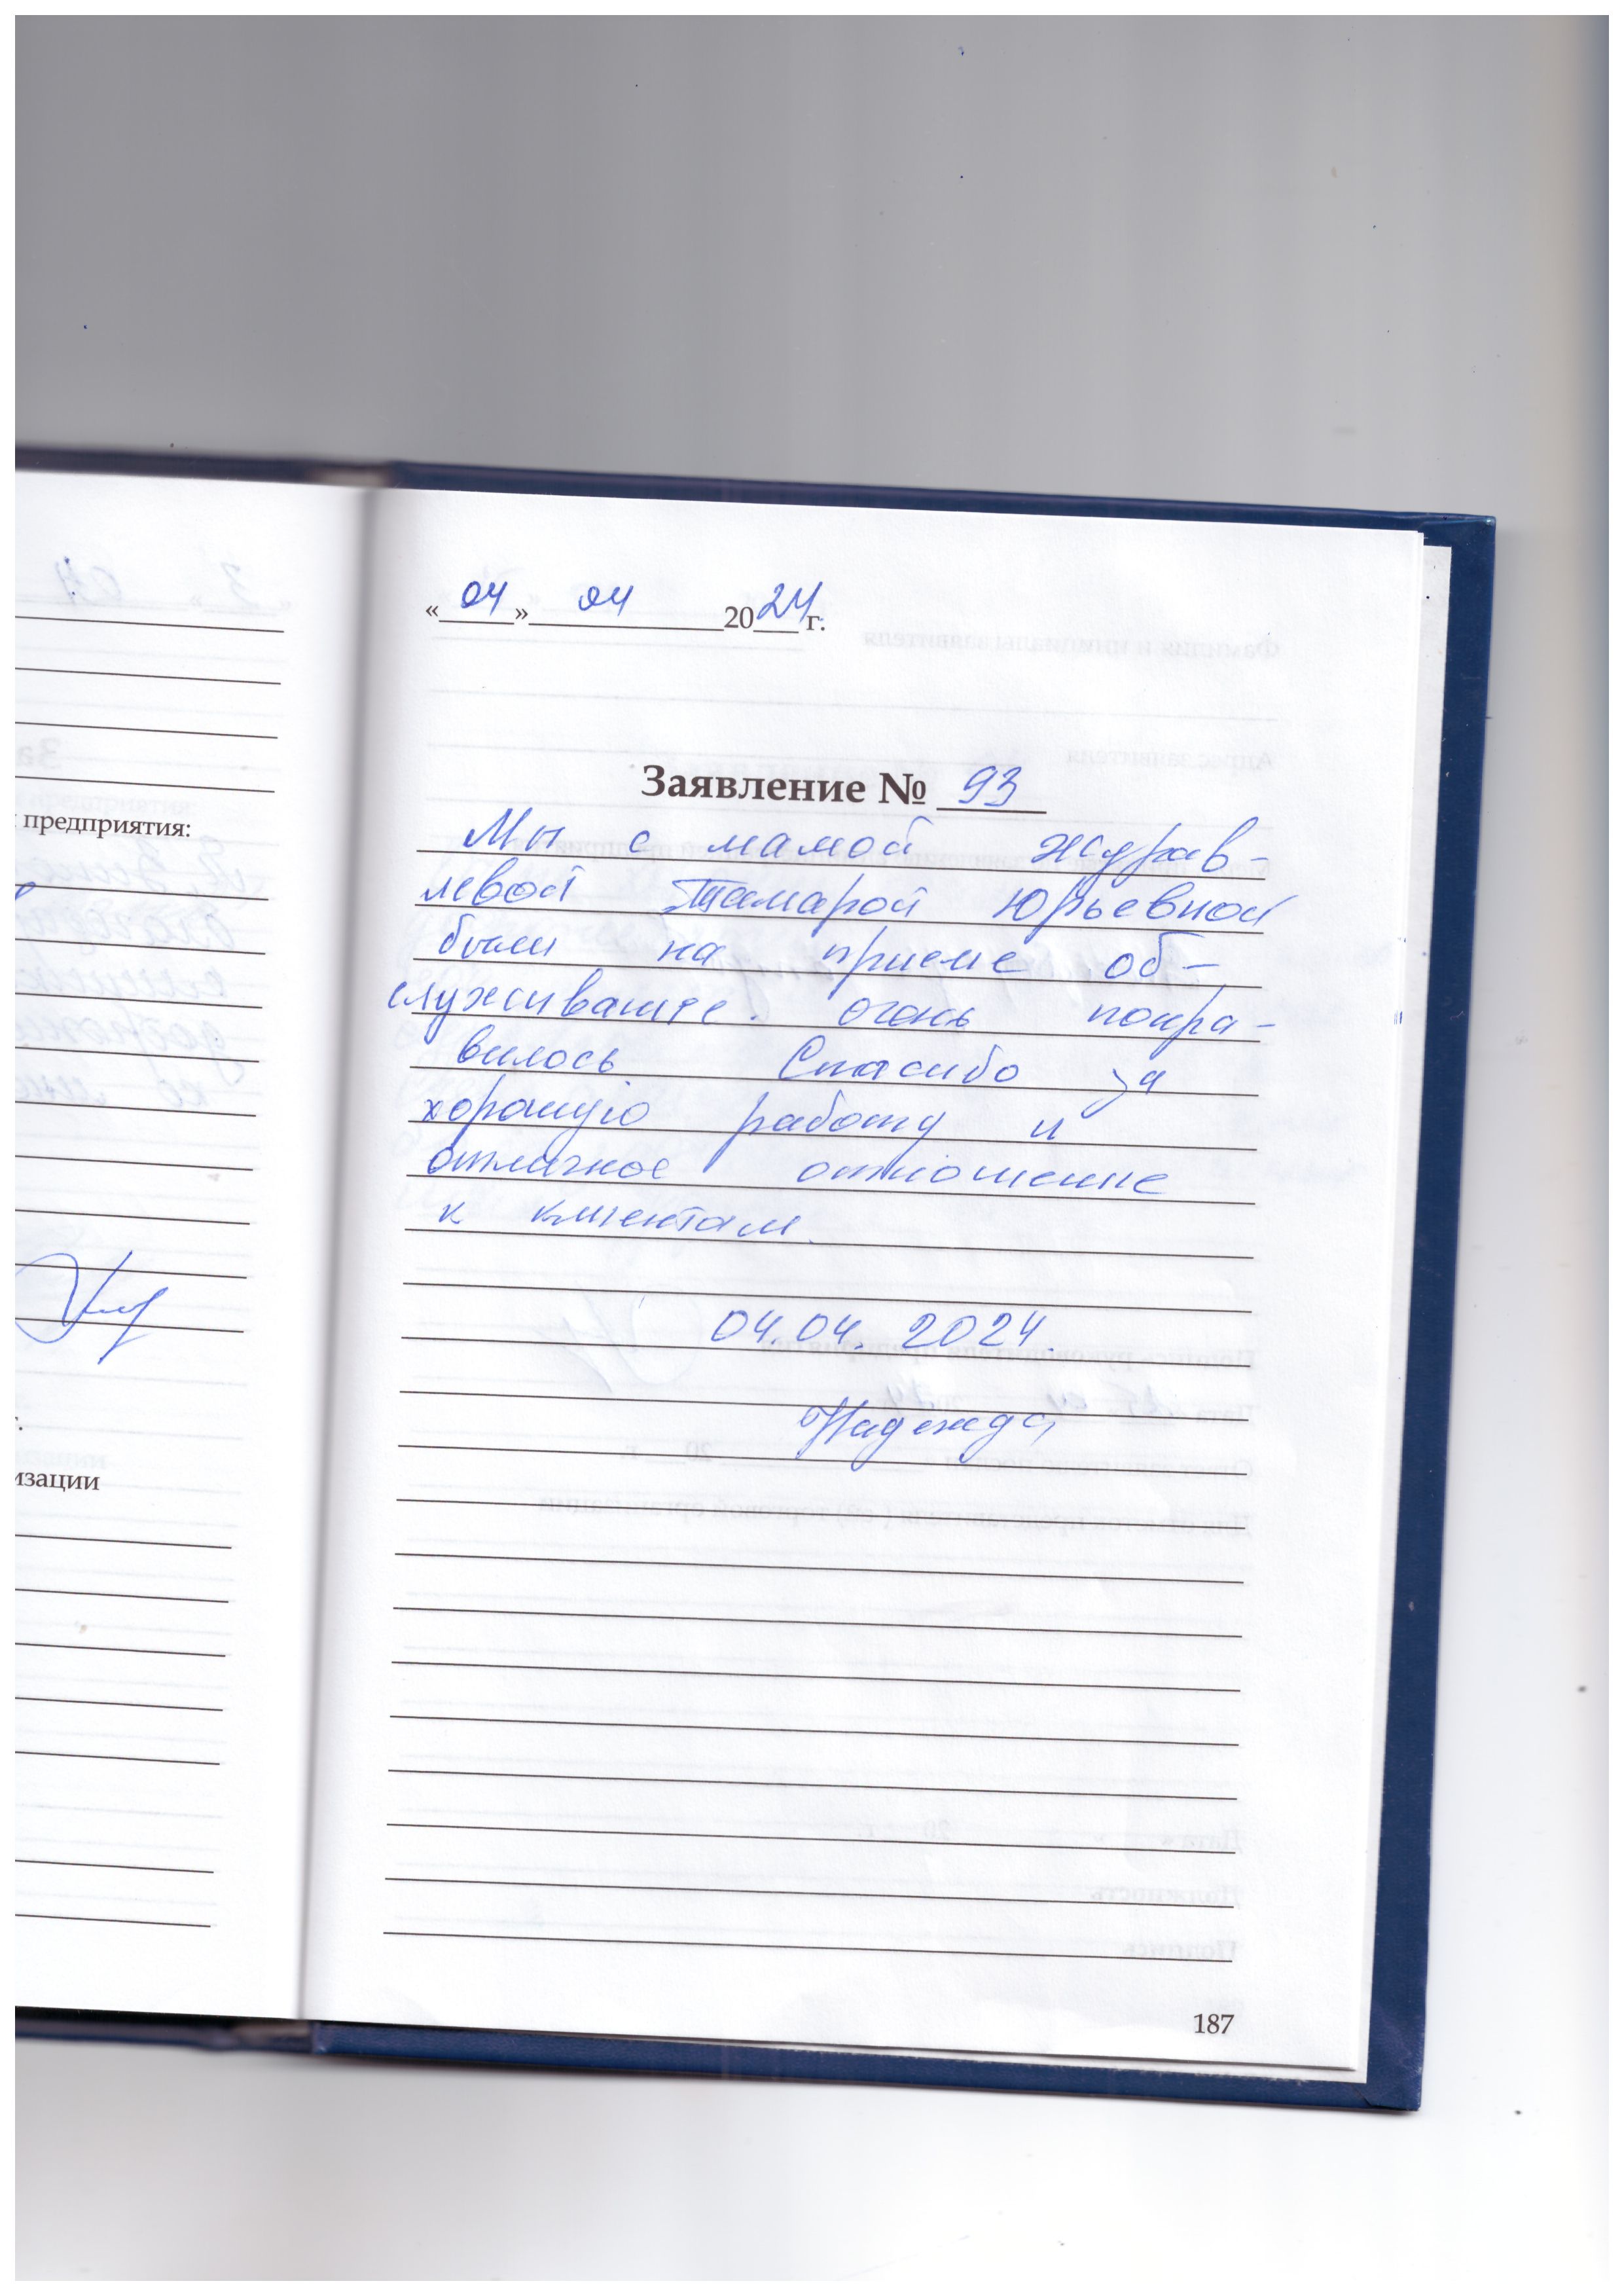 предприятия:
изации
«04» 04 2024 г.
Заявление № 93
Мы с мамой Журав-
левой Тамарой Юрьевной
были на приеме об-
служивание. очень понра-
вилось. Спасибо за
хорошую работу и
отличное отношение
к клиентам.
04.04.2024.
Надежда
187